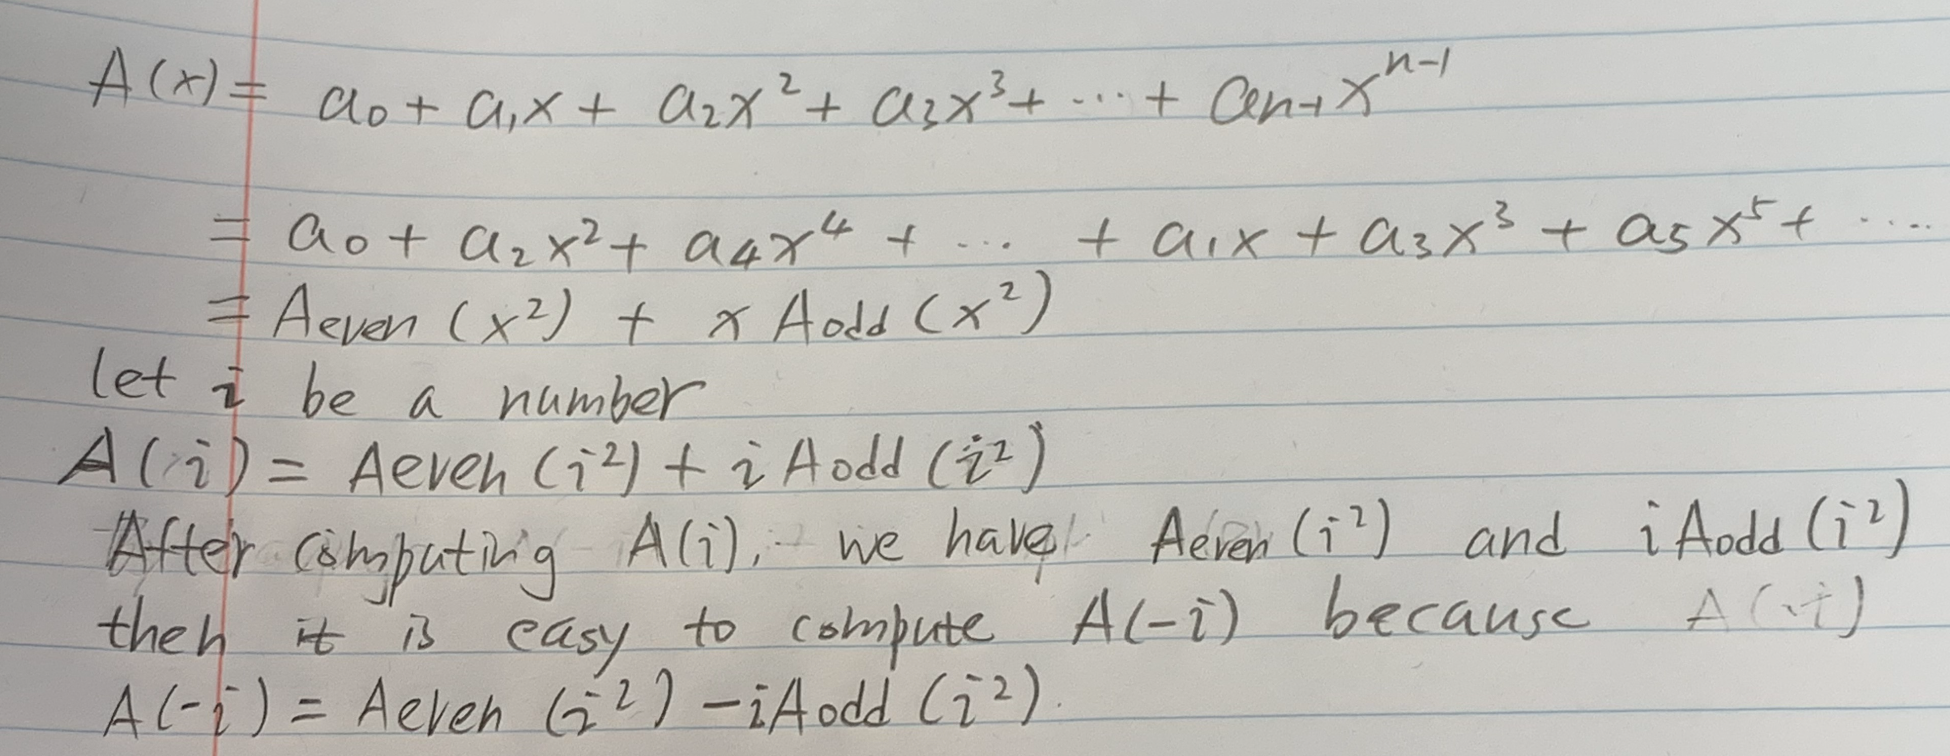 A(x) = a₀ + a₁x + a₂x² + a₃x³ + ... + aₙ₋₁xⁿ⁻¹
= a₀ + a₂x² + a₄x⁴ + ... + a₁x + a₃x³ + a₅x⁵ + ....
= Aeven (x²) + x Aodd (x²)
let i be a number
A(i) = Aeven (i²) + i Aodd (i²)
After computing A(i), we have Aeven (i²) and i Aodd (i²)
then it is easy to compute A(-i) because
A(-i) = Aeven (i²) - iAodd (i²).